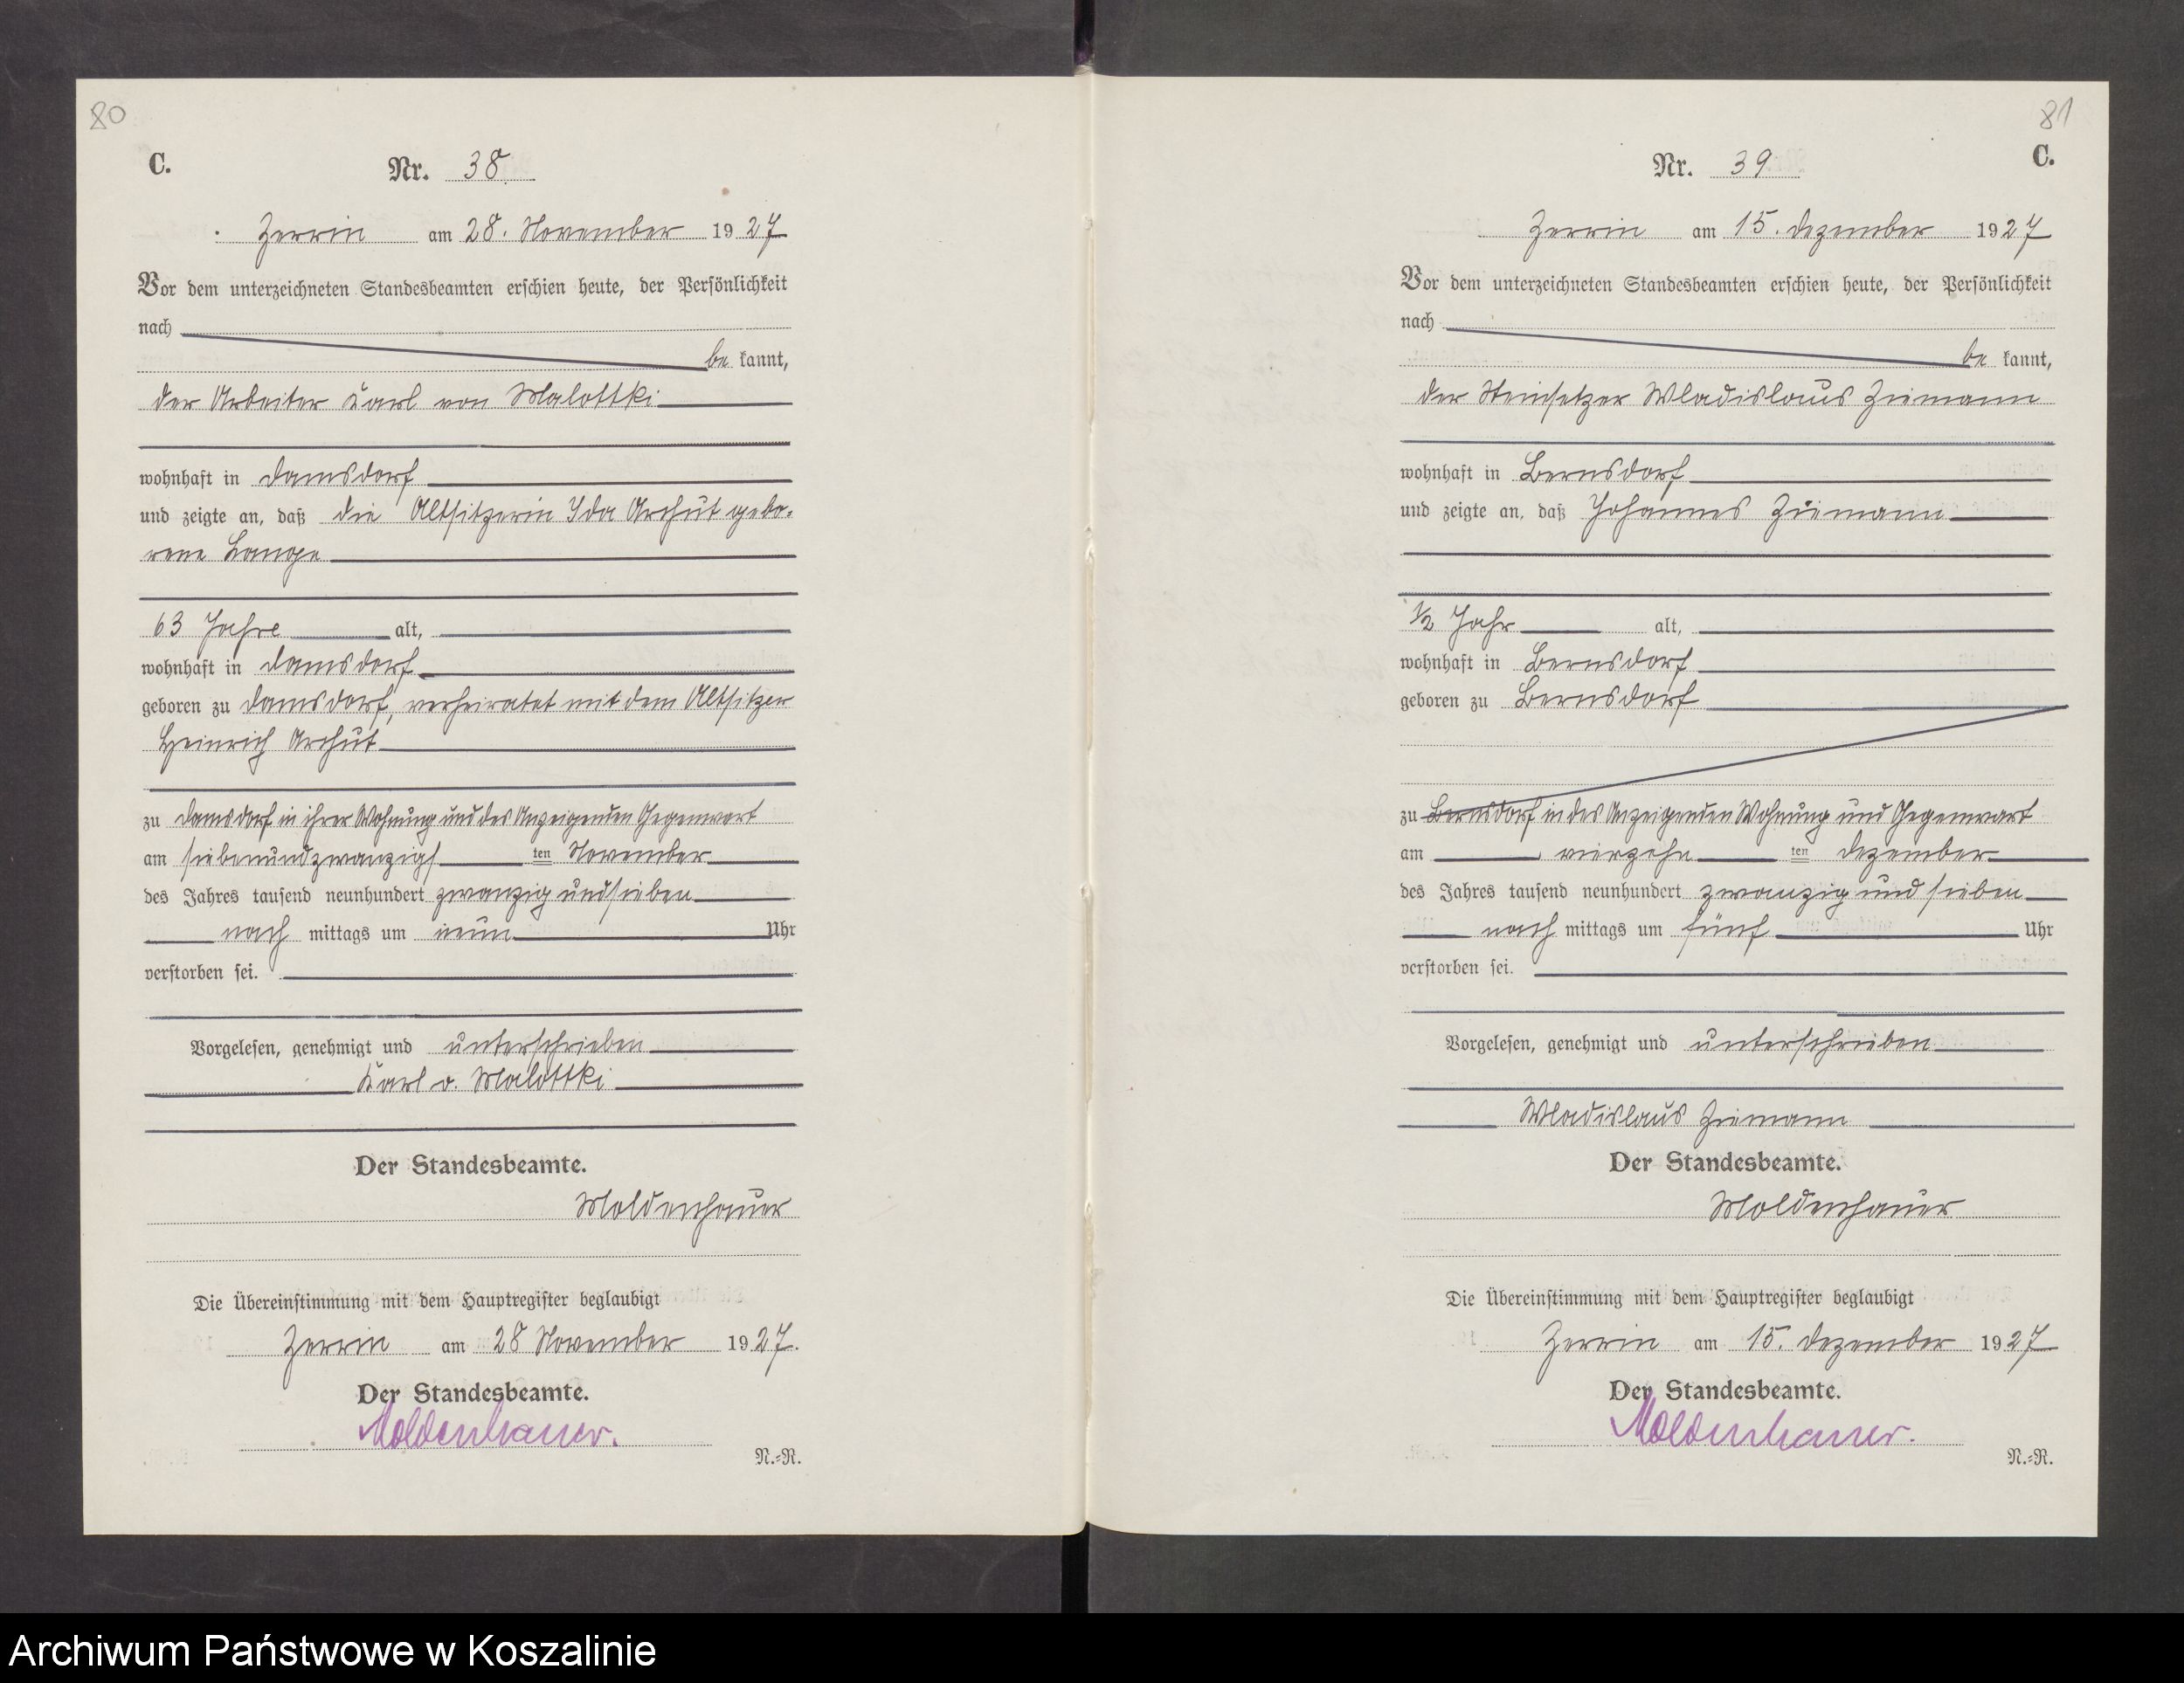 80
C.
Nr. 38
Zerrin am 28. November 1927
Vor dem unterzeichneten Standesbeamten erschien heute, der Persönlichkeit
nach
be kannt,
der Arbeiter Karl von Malottki
wohnhaft in Damsdorf
und zeigte an, daß die Altsitzerin Ida Archut gebo-
rene Lange
63 Jahre alt,
wohnhaft in Damsdorf
geboren zu Damsdorf, verheiratet mit dem Altsitzer
Heinrich Archut
zu Damsdorf in ihrer Wohnung und des Anzeigenden Gegenwart
am siebenundzwanzigs ten November
des Jahres tausend neunhundert zwanzig und sieben
nach mittags um neun Uhr
verstorben sei.
Vorgelesen, genehmigt und unterschrieben
Karl v. Malottki
Der Standesbeamte.
Moldenhauer
Die Übereinstimmung mit dem Hauptregister beglaubigt
Zerrin am 28 November 1927.
Der Standesbeamte.
Moldenhauer.
N.-R.
81
C.
Nr. 39
Zerrin am 15. Dezember 1927
Vor dem unterzeichneten Standesbeamten erschien heute, der Persönlichkeit
nach
be kannt,
der Steinsetzer Wladislaus Ziemann
wohnhaft in Bernsdorf
und zeigte an, daß Johannes Ziemann
1/2 Jahr alt,
wohnhaft in Bernsdorf
geboren zu Bernsdorf
zu Bernsdorf in des Anzeigenden Wohnung und Gegenwart
am vierzehn ten Dezember
des Jahres tausend neunhundert zwanzig und sieben
nach mittags um fünf Uhr
verstorben sei.
Vorgelesen, genehmigt und unterschrieben
Wladislaus Ziemann
Der Standesbeamte.
Moldenhauer
Die Übereinstimmung mit dem Hauptregister beglaubigt
Zerrin am 15. Dezember 1927
Der Standesbeamte.
Moldenhauer.
N.-R.
Archiwum Państwowe w Koszalinie